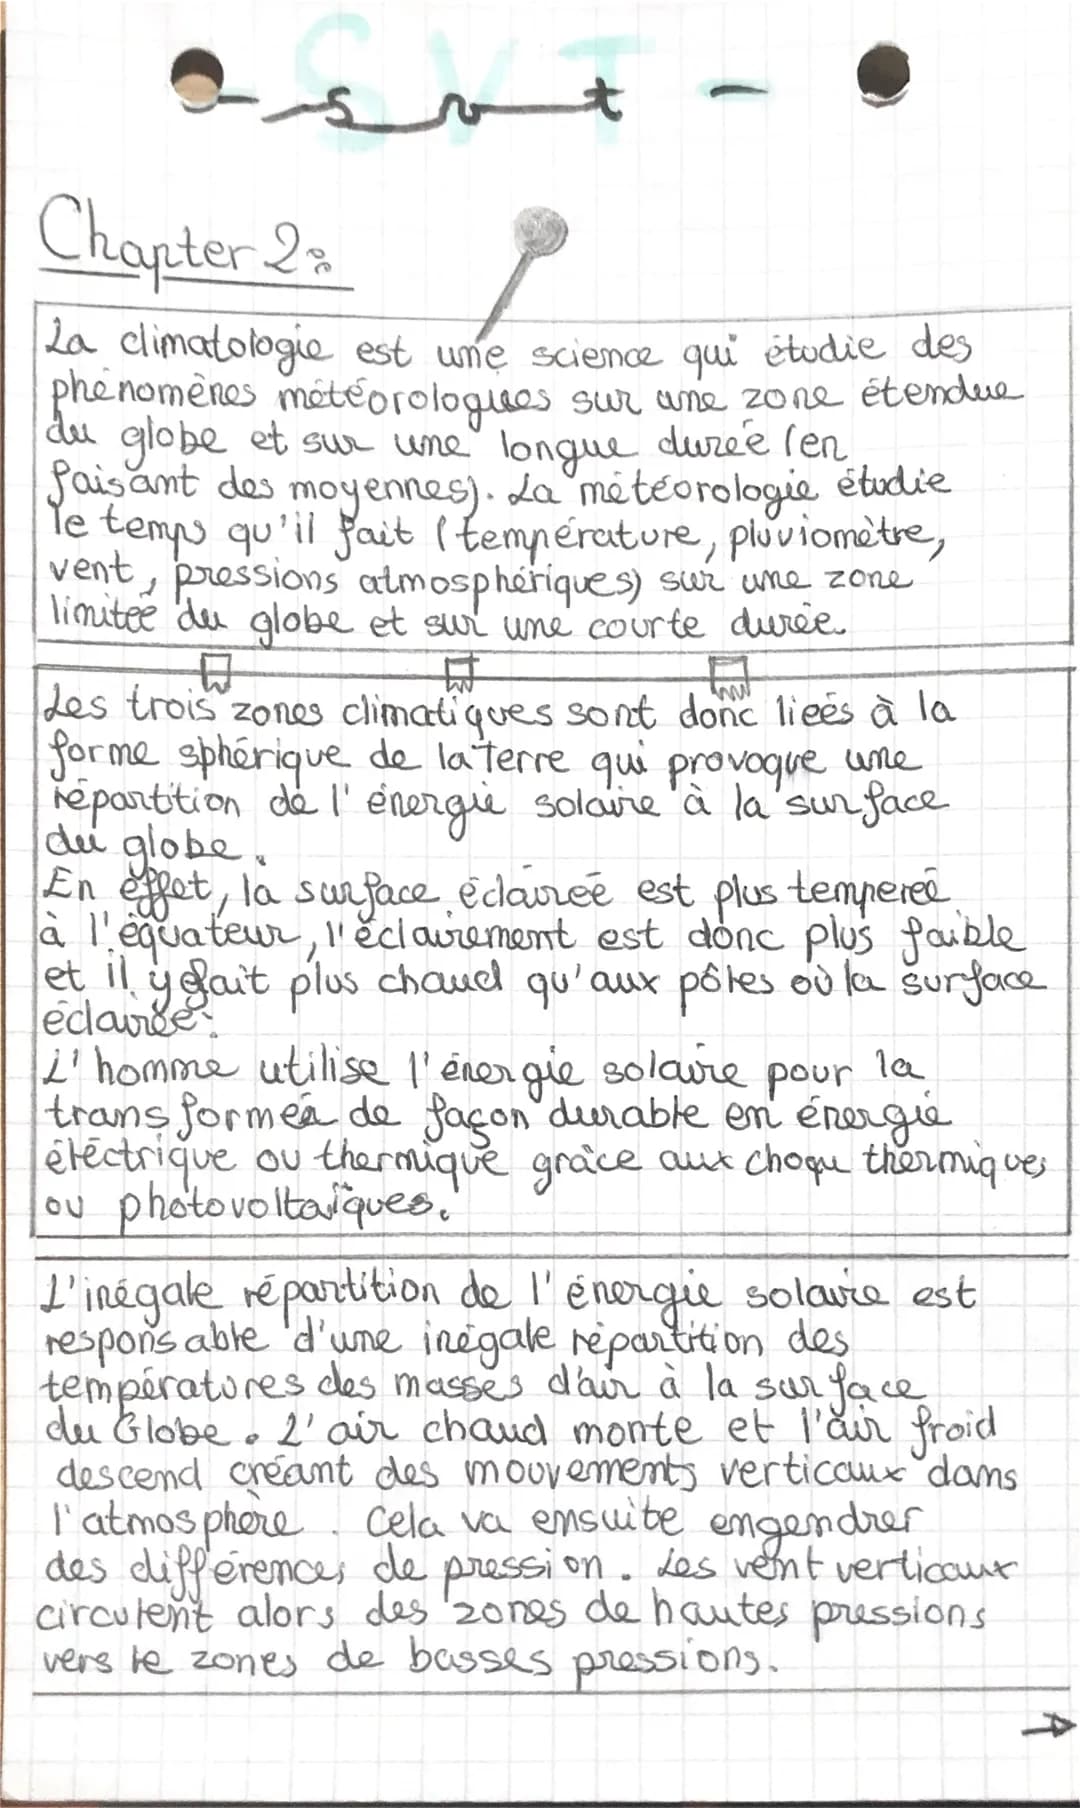 SVT
- svt -
Chapter 2:
La climatologie est une science qui étudie des
phénomènes météorologiques sur une zone étendue
du globe et sur une longue durée (en
faisant des moyennes). La météorologie étudie
le temps qu'il fait (température, pluviomètre,
vent, pressions atmosphériques) sur une zone
limitée du globe et sur une courte durée.
Les trois zones climatiques sont donc lieés à la
forme sphérique de la Terre qui provoque une
répartition de l'énergie solaire à la surface
du globe.
En effet, la surface éclaireé est plus tempereé
à l'équateur, l'éclairement est donc plus faible
et il y fait plus chaud qu'aux pôles où la surface
éclairée.
L'homme utilise l'énergie solaire pour la
transformer de façon durable en énergie
éléctrique ou thermique grâce aux choqu thermiques
ou photovoltaïques.
L'inégale répartition de l'énergie solaire est
responsable d'une inégale répartition des
températures des masses d'air à la surface
du Globe. L'air chaud monte et l'air froid
descend créant des mouvements verticaux dans
l'atmosphère. Cela va ensuite engendrer
des différences de pression. Les vent verticaux
circulent alors des zones de hautes pressions
vers le zones de basses pressions.